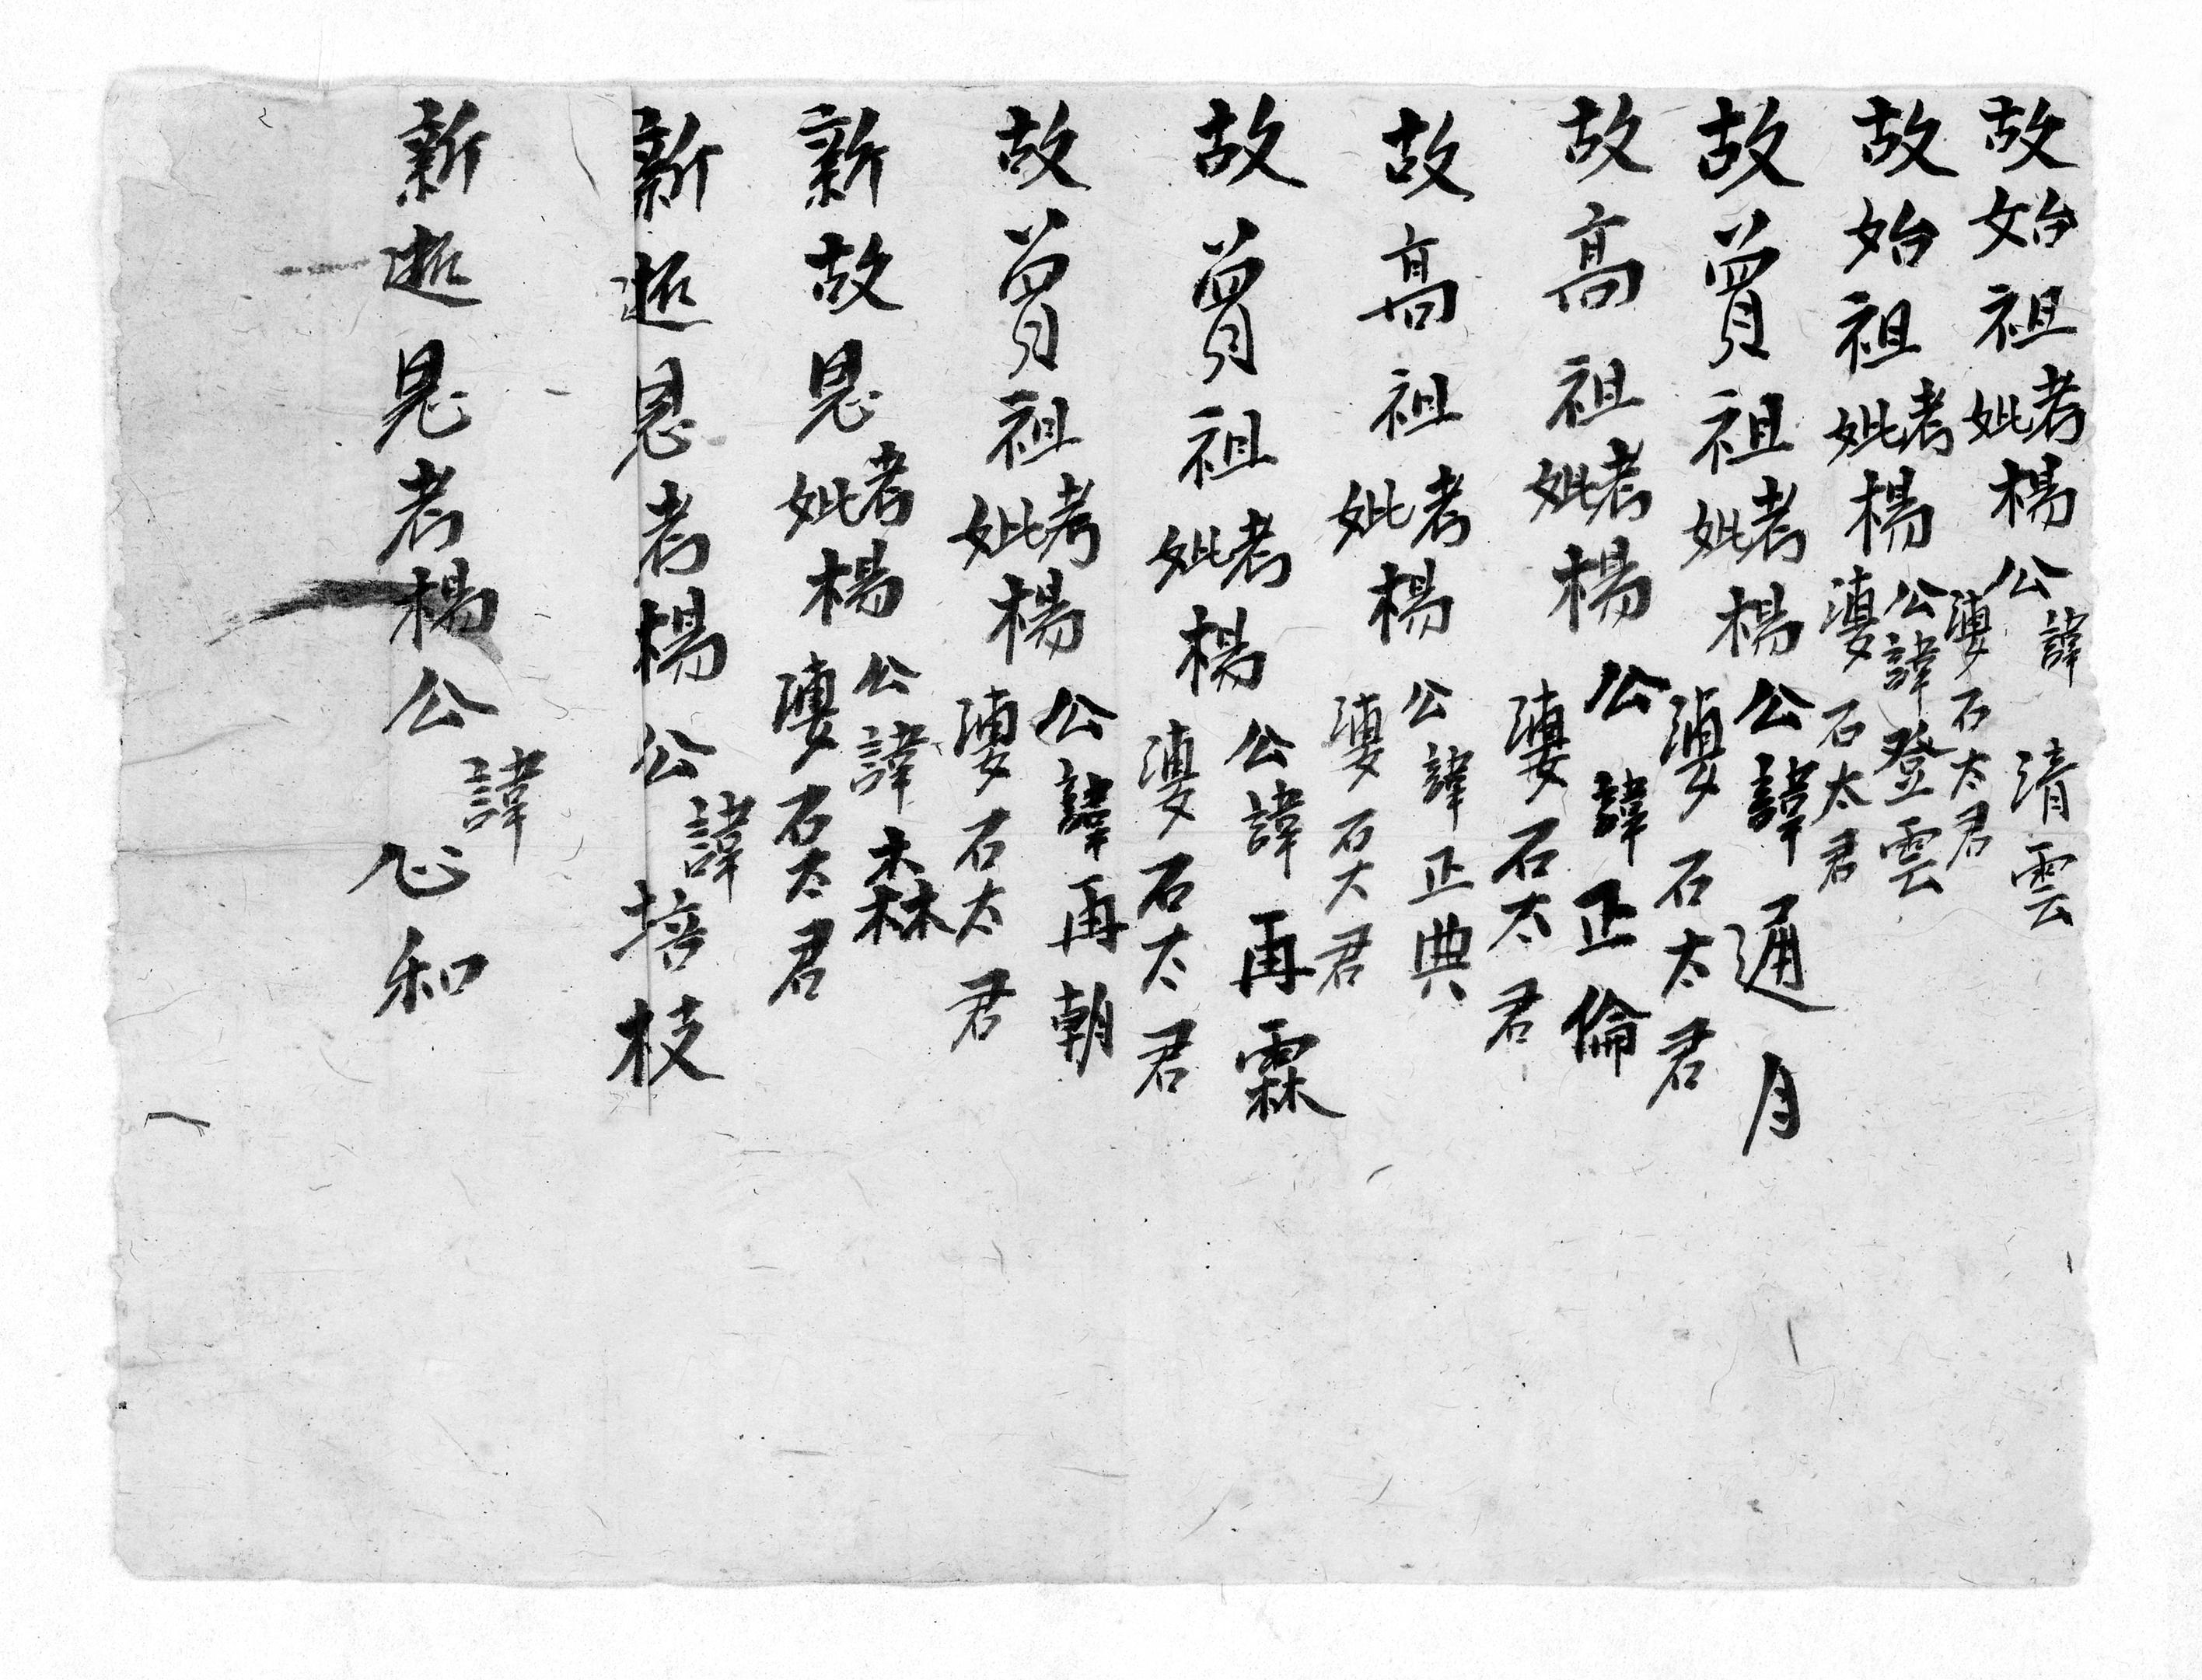 故始祖考妣楊公諱清雲渡石太君
故始祖考妣楊公諱登雲渡石太君
故曾祖考妣楊公諱通月渡石太君
故高祖考妣楊公諱正倫渡石太君
故高祖考妣楊公諱正典渡石太君
故曾祖考妣楊公諱再霖渡石太君
故曾祖考妣楊公諱再朝渡石太君
新故恩考妣楊公諱森渡石太君
新逝恩考楊公諱培枝
新逝恩考楊公諱和